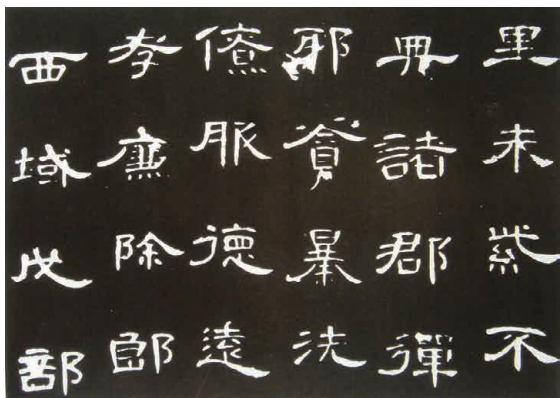 里朱紫不
典諸郡彈
邪貪暴洗
僚服德遠
孝廉除郎
西域戊部